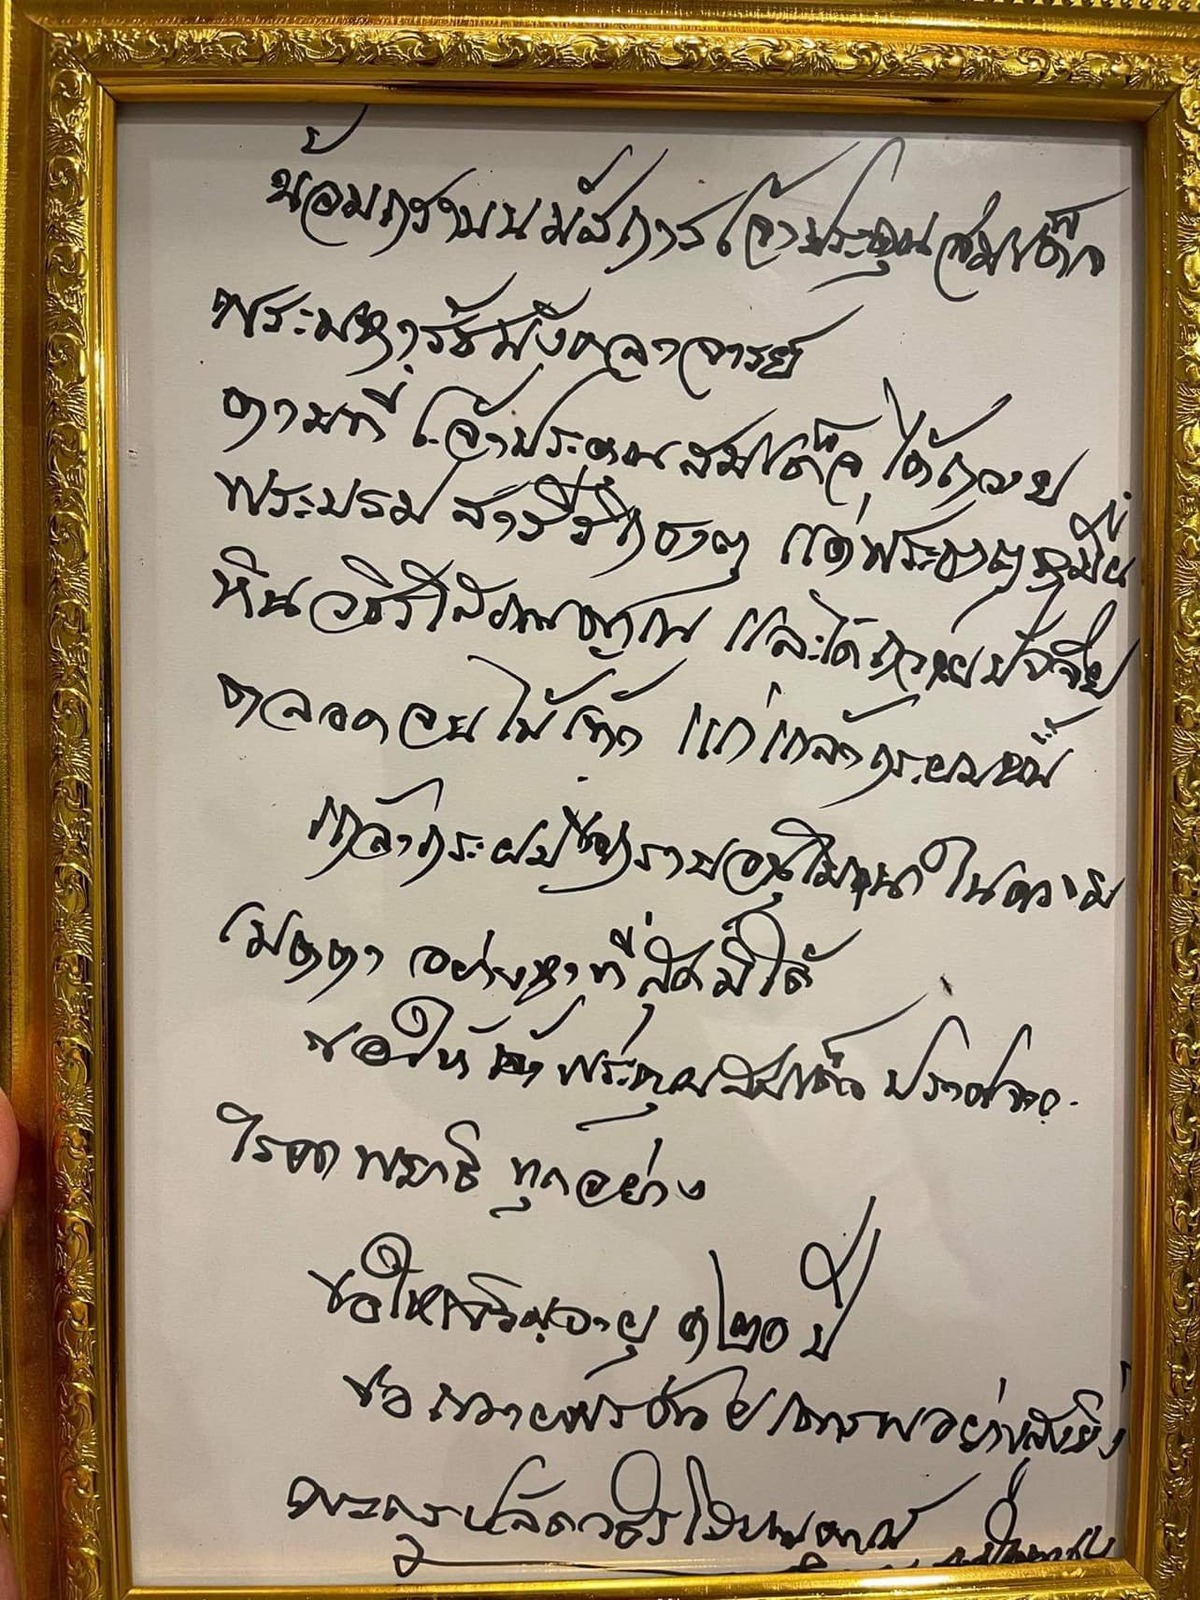 น้อมกราบนมัสการเจ้าประคุณสมเด็จ
พระมหารัชมังคลาจารย์
ตามที่ เจ้าประคุณสมเด็จ ได้ถวาย
พระบรมสารีริกธาตุ แด่พระธาตุหมื่น
หิน และได้ถวายปัจจัย
ตลอดจนไม้เท้า แก่เกล้ากระผมนั้น
เกล้ากระผมขอกราบอนุโมทนาในความ
เมตตา อย่างหาที่สุดมิได้
ขอให้เจ้าพระคุณสมเด็จ ปราศจาก
โรคาพยาธิ ทุกอย่าง
ขอให้เจริญอายุ ๑๒๐ ปี
ขอถวายพระพรด้วยเคารพอย่างสูงยิ่ง
พระครูปลัด